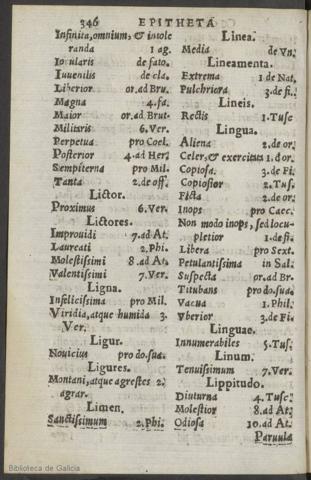 346 EPITHETA
Infinita, omnium, & intole
randa 1 ag.
Iocularis de fato.
Iuuenilis de cla.
Liberior or. ad Bru.
Magna 4. fa.
Maior or. ad Brut.
Militaris 6. Ver.
Perpetua pro Coel.
Posterior 4. ad Her.
Sempiterna pro Mil.
Tanta 2. de off.
Lictor.
Proximus 6. Ver.
Lictores.
Improuidi 7. ad At.
Laureati 2. Phi.
Molestissimi 8. ad At.
Valentissimi 7. Ver.
Ligna.
Infelicissima pro Mil.
Viridia, atque humida 3.
Ver.
Ligur.
Nouicius pro do. sua.
Ligures.
Montani, atque agrestes 2.
agrar.
Limen.
Sanctissimum 2. Phi.
Linea.
Media de Vn.
Lineamenta.
Extrema 1 de Nat.
Pulchriora 3. de fi.
Lineis.
Rectis 1. Tusc
Lingua.
Aliena 2. de or.
Celer, & exercitus 1. d or.
Copiosa 3. de Fi.
Copiosior 2. Tus.
Ficta 2. de or.
Inops pro Caec.
Non modo inops, sed locu-
pletior 1. de fi.
Libera pro Sext.
Petulantissima in Sal.
Suspecta or. ad Br.
Titubans pro do. sua.
Vacua 1. Phil.
Vberior 3. de Fi.
Linguae.
Innumerabiles 5. Tus.
Linum.
Tenuissimum 7. Ver.
Lippitudo.
Diuturna 4. Tusc.
Molestior 8. ad At.
Odiosa 10. ad At.
Paruula
Biblioteca de Galicia